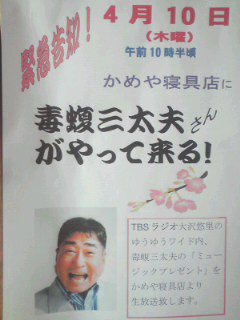 緊急告知!
4月10日
(木曜)
午前10時半頃
かめや寝具店に
毒蝮三太夫さん
がやって来る!
TBSラジオ大沢悠里の
ゆうゆうワイド内、
毒蝮三太夫の『ミュー
ジックプレゼント』を
かめや寝具店より
生放送致します。